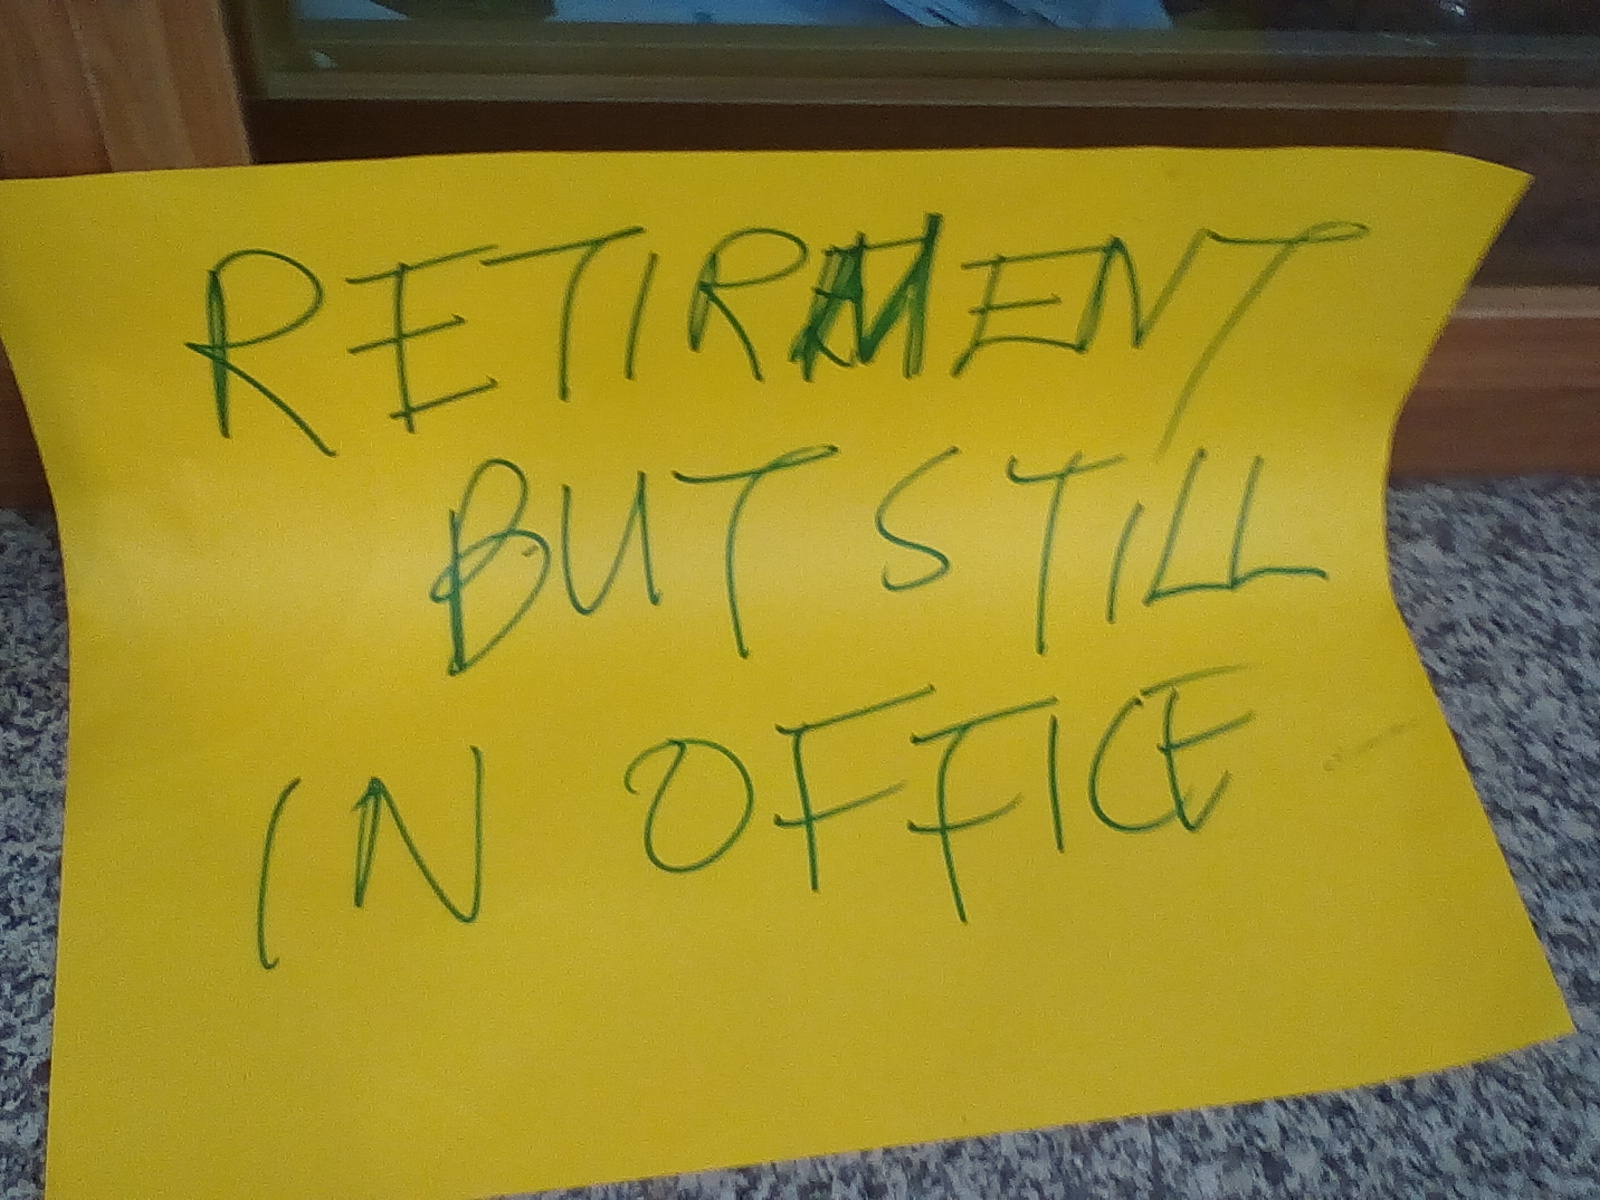 RETIRMENT
BUT STILL
IN OFFICE